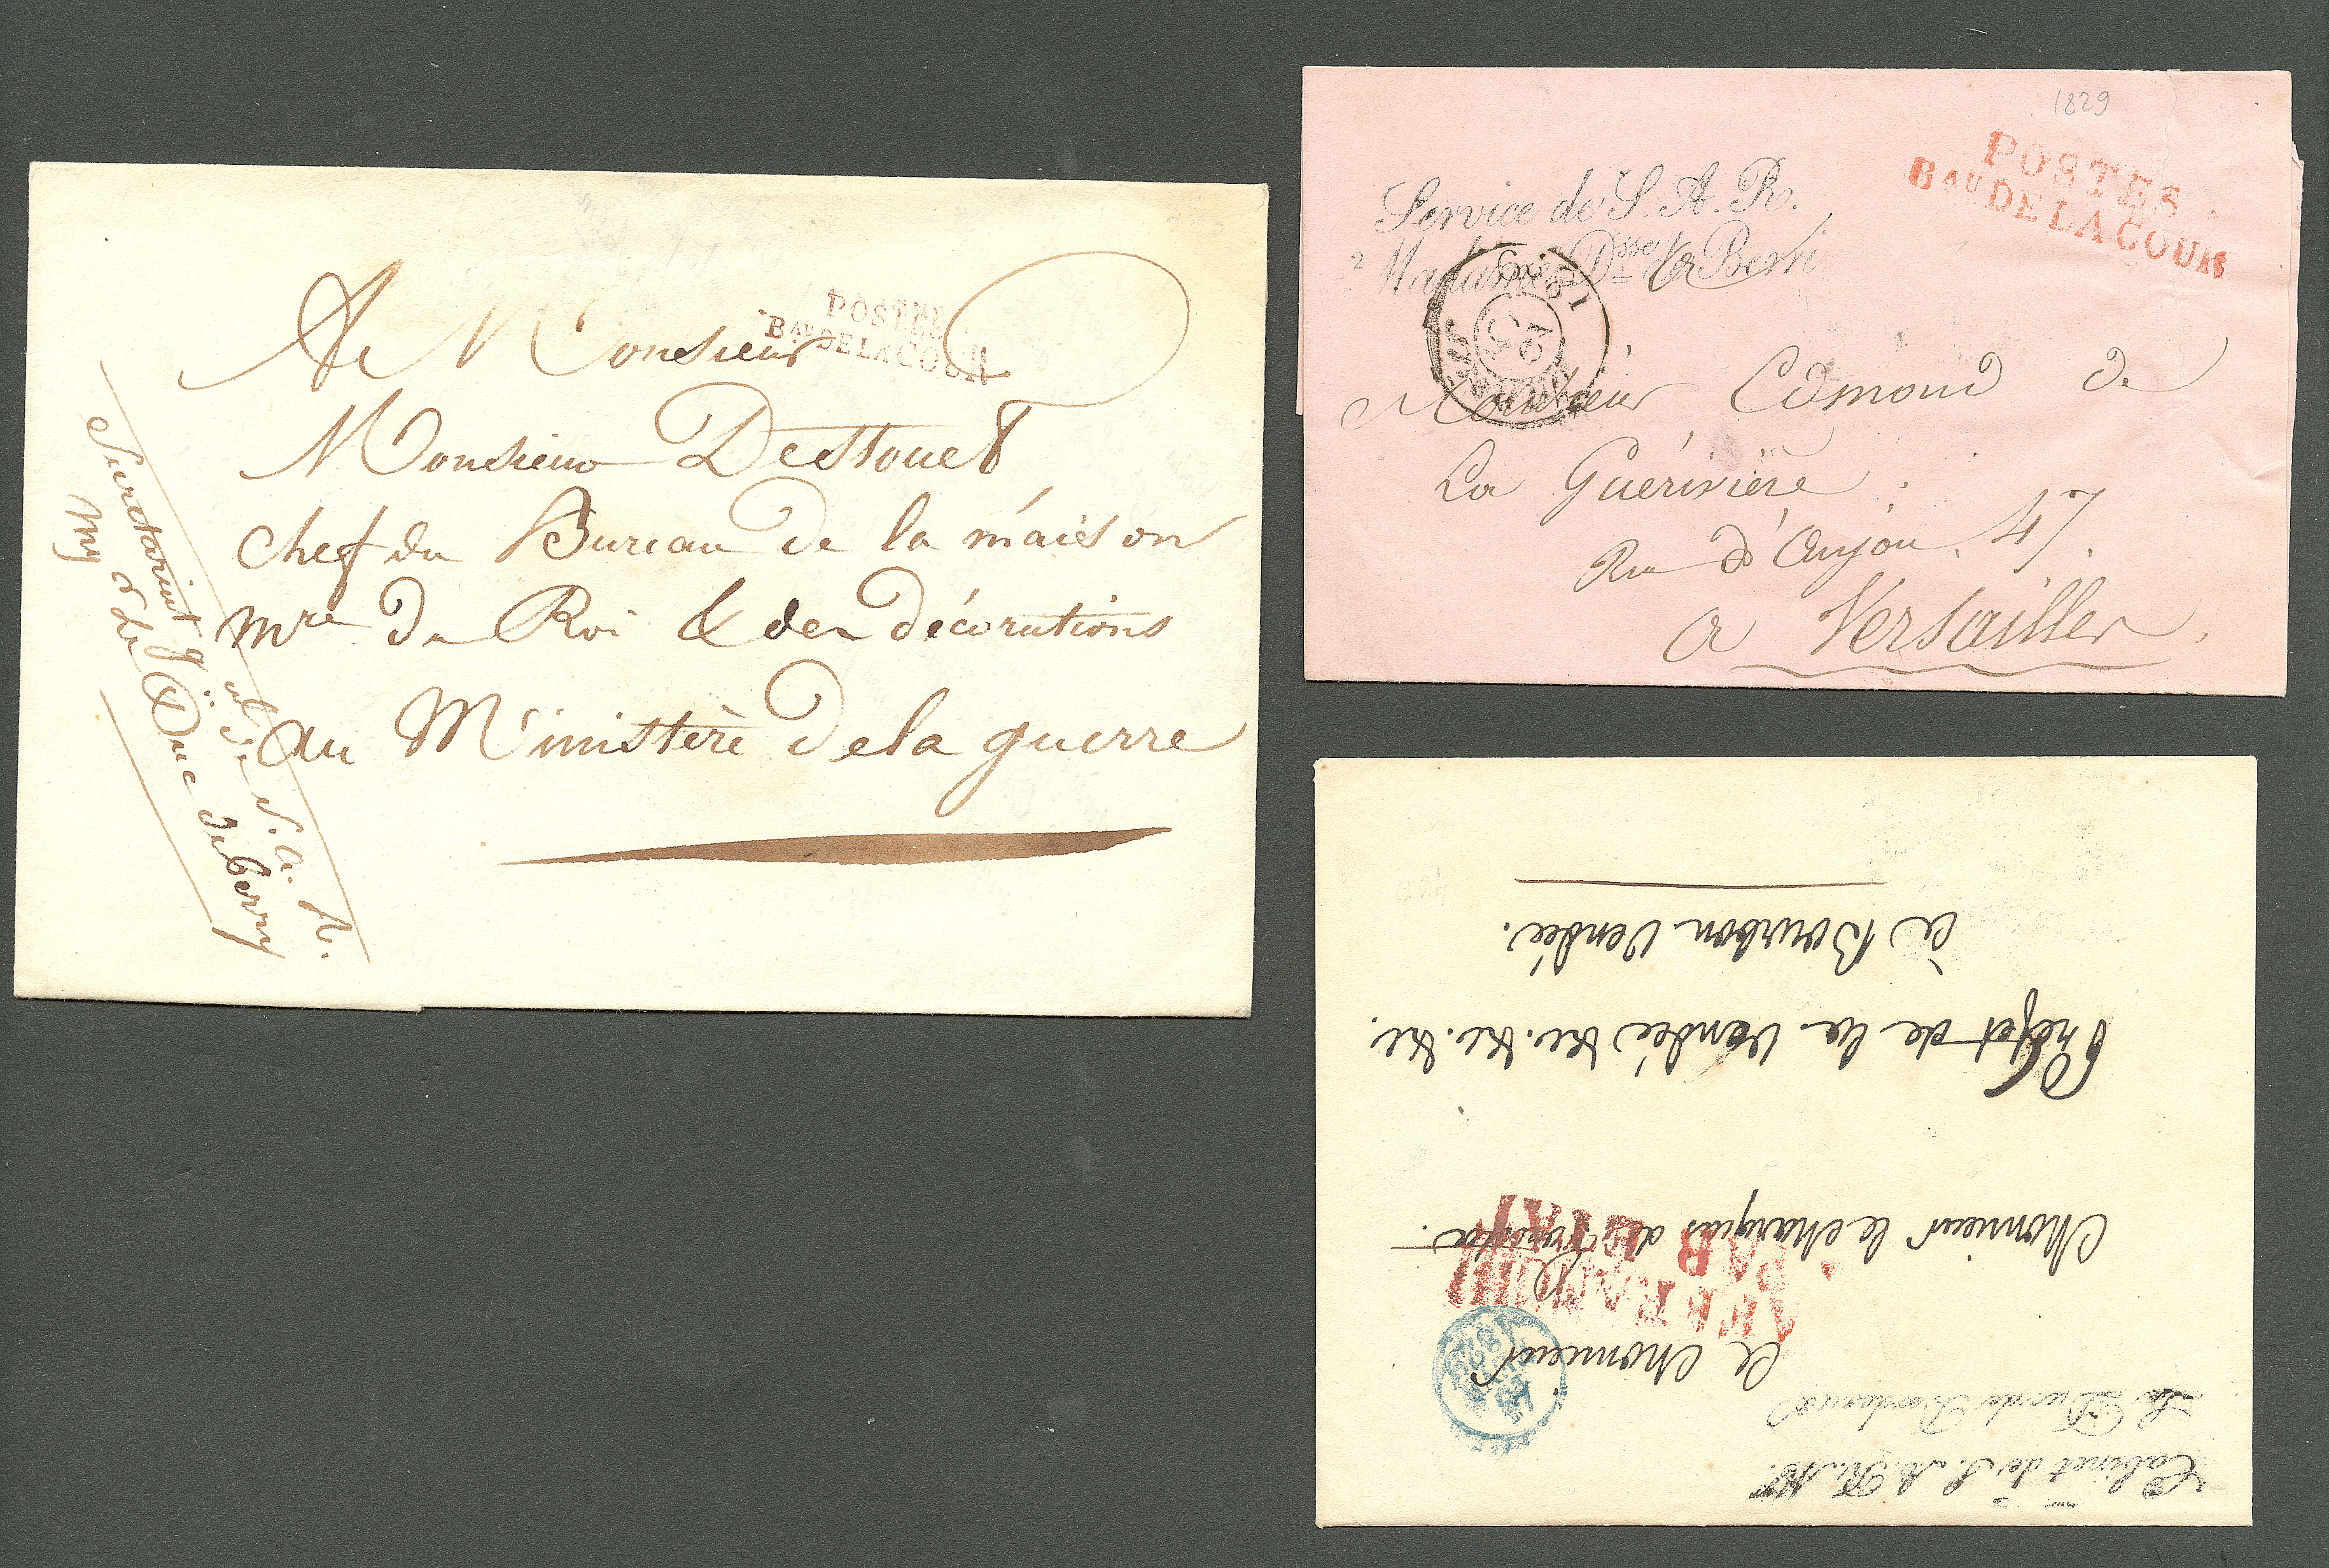 POSTES
BAU DE LA COUR
A Monsieur
Monsieur Destouet
chef du Bureau de la maison
mre du Roi & des décorations
au Ministère de la guerre
Secretariat g.al de S. A. R.
Mgr le Duc de berry
1829
POSTES
BAU DE LA COUR
Service de S. A. R.
Madame Dsse de Berri
Monsieur Edmond de
La Guérivière
Rue d'Anjou. 47.
a Versailles
Cabinet de S. A. R. Mgr
Le Duc de Bordeaux
A Monsieur
AFFRANCHI
PAR ETAT
Monsieur le Marquis de
Préfet de la Vendée &c. &c. &c.
à Bourbon Vendée.